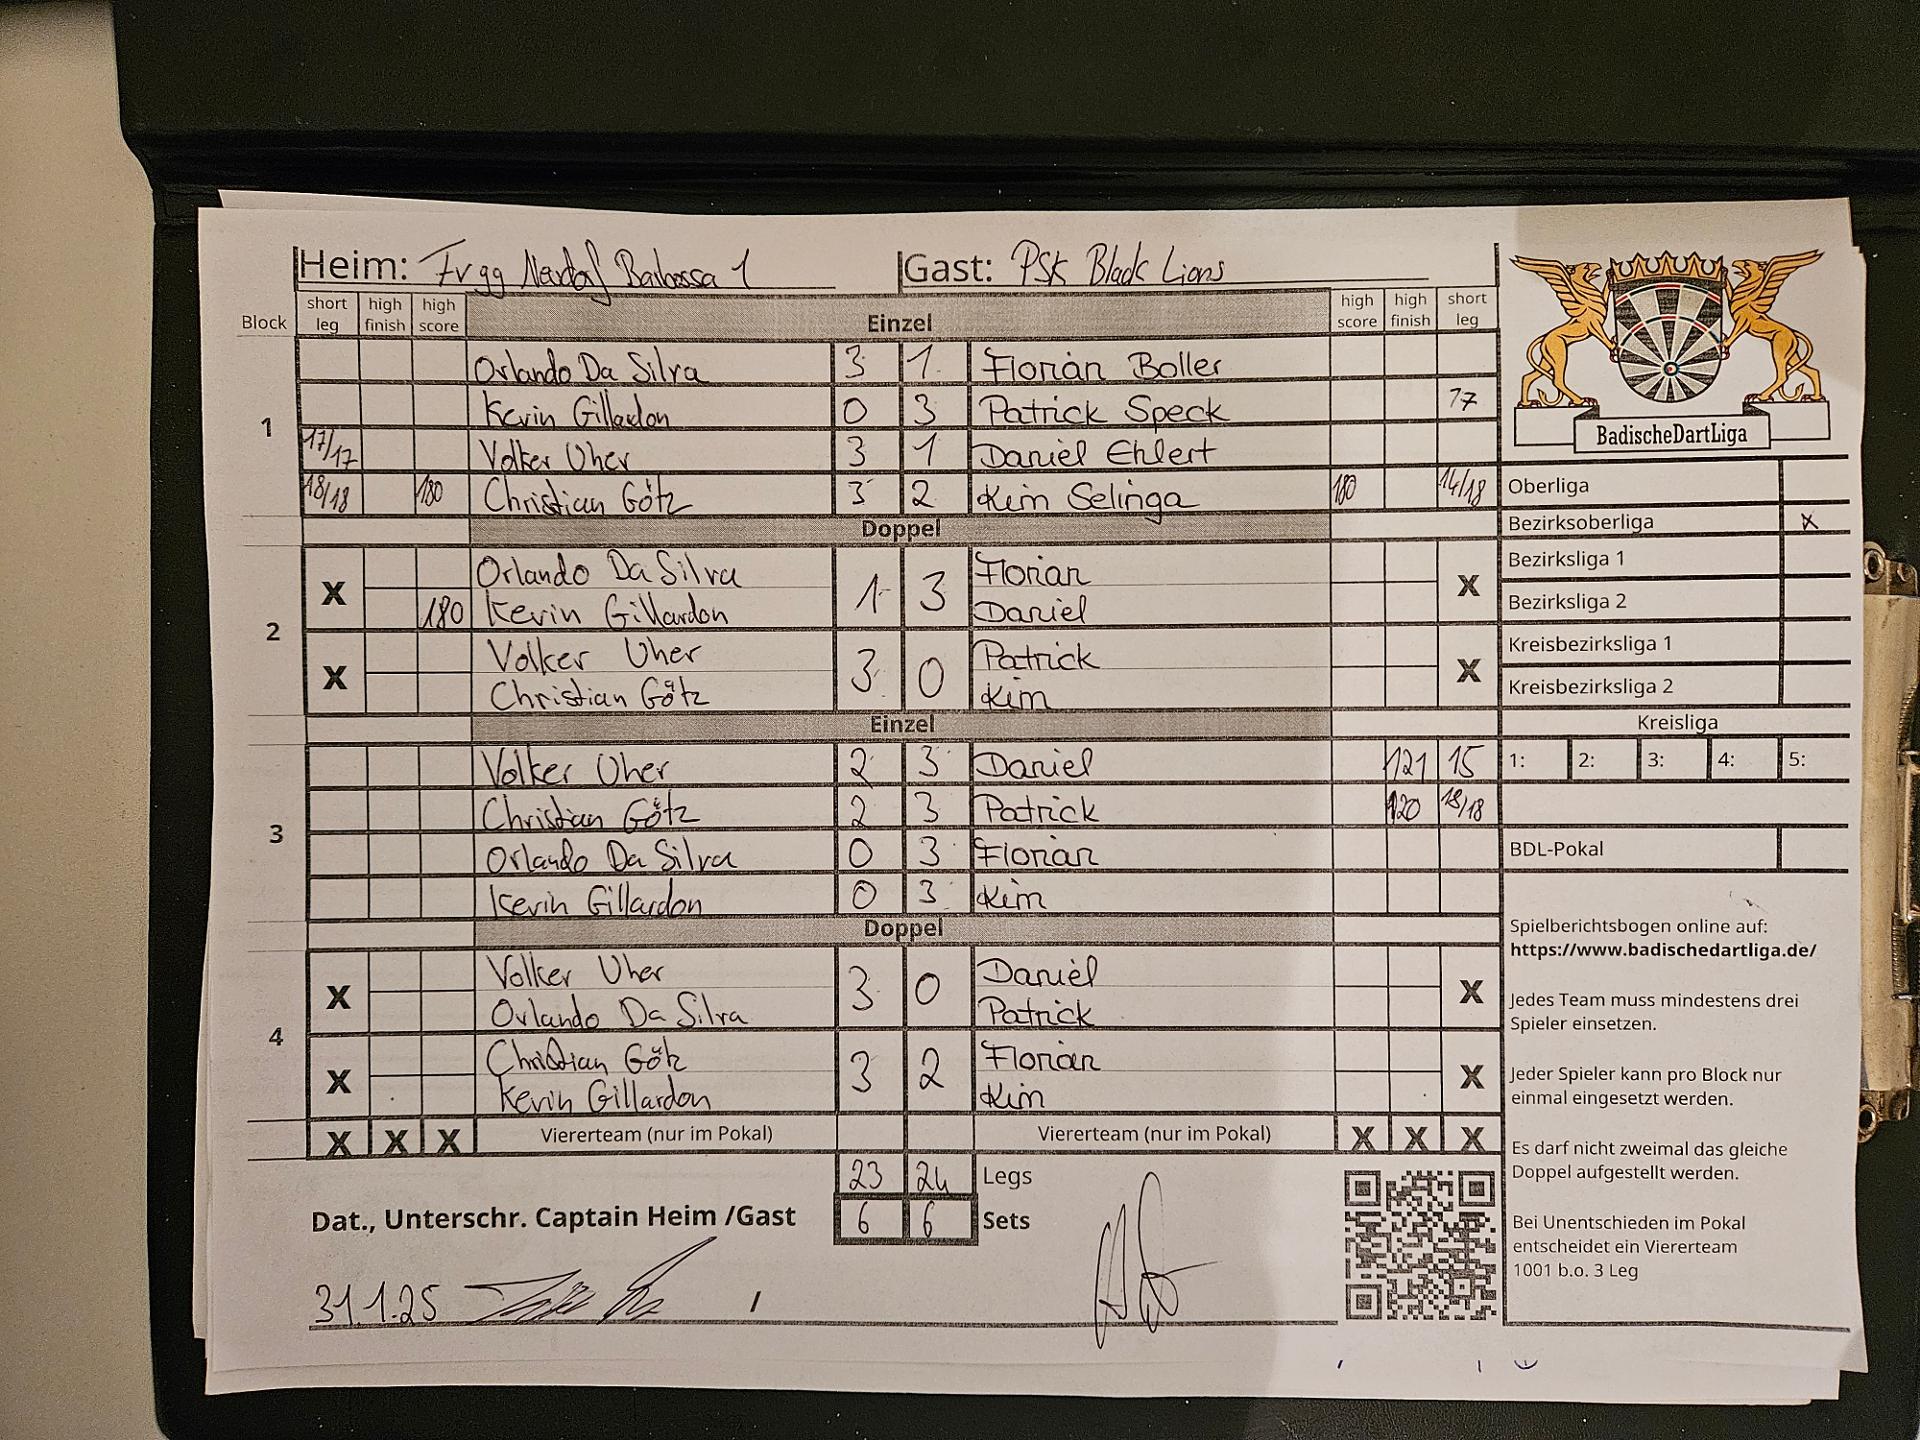 Heim: Barbossa 1 Gast: PSK Black Lions
Block short leg high finish high score Einzel high score high finish short leg
1
Orlando Da Silva 3 1 Florian Boller
Kevin Gillardon 0 3 Patrick Speck 17
17/17 Volker Uher 3 1 Daniel Ehlert
18/18 180 Christian Götz 3 2 Kim Selinga 180 14/18
Doppel
2
X Orlando Da Silva 1 3 Florian X
180 Kevin Gillardon Daniel
X Volker Uher 3 0 Patrick X
Christian Götz Kim
Einzel
3
Volker Uher 2 3 Daniel 121 15
Christian Götz 2 3 Patrick 120 18/18
Orlando Da Silva 0 3 Florian
Kevin Gillardon 0 3 Kim
Doppel
4
X Volker Uher 3 0 Daniel X
Orlando Da Silva Patrick
X Christian Götz 3 2 Florian X
Kevin Gillardon Kim
X X X Viererteam (nur im Pokal) Viererteam (nur im Pokal) X X X
23 24 Legs
Dat., Unterschr. Captain Heim /Gast 6 6 Sets
31.1.25 /
BadischeDartLiga
Oberliga
Bezirksoberliga X
Bezirksliga 1
Bezirksliga 2
Kreisbezirksliga 1
Kreisbezirksliga 2
Kreisliga
1: 2: 3: 4: 5:
BDL-Pokal
Spielberichtsbogen online auf:
https://www.badischedartliga.de/
Jedes Team muss mindestens drei
Spieler einsetzen.
Jeder Spieler kann pro Block nur
einmal eingesetzt werden.
Es darf nicht zweimal das gleiche
Doppel aufgestellt werden.
Bei Unentschieden im Pokal
entscheidet ein Viererteam
1001 b.o. 3 Leg